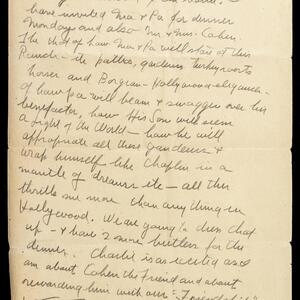 have invited Ma & Pa for dinner
Monday and also Mr & Mrs. Cohen.
The thot of how Ma & Pa will stare at this
Ranch – its paths, gardens,
horses and Borgian – Hollywood elegance –
of how Pa will beam & swagger over his
benefactor, how His Son will seem
a light of the World – how he will
appropriate all those gardens &
wrap himself like Chaplin in a
mantle of dreams etc – all this
thrills me more than anything in
Hollywood. We are going to dress that
up – & have 2 more butlers for the
dinner. Charlie is as excited as I
am about Cohen the Friend and about
rewarding him with our